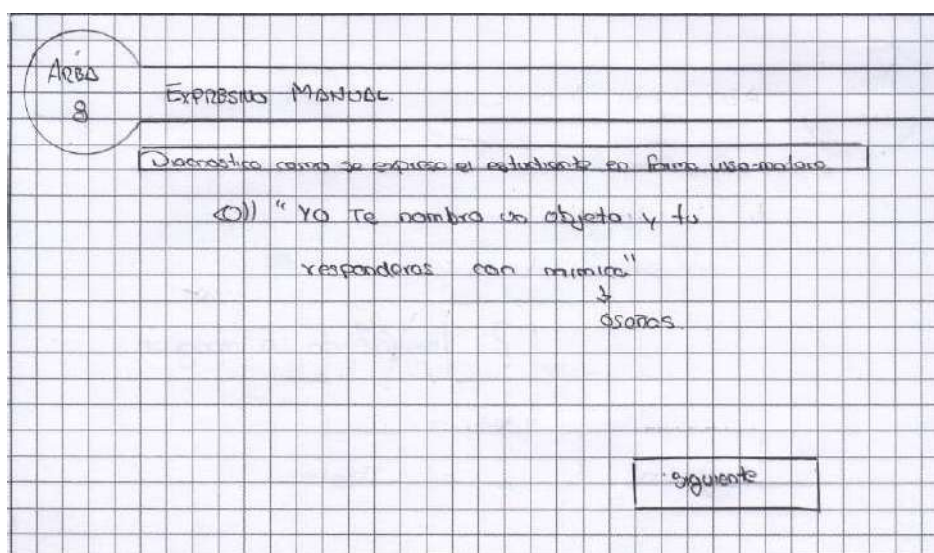 ÁREA
8
EXPRESIVO MANUAL.
Diagnostica como se expresa el estudiante en forma viso-motora
"Yo Te nombro un objeto y tu
responderas con mimica"
o señas.
siguiente